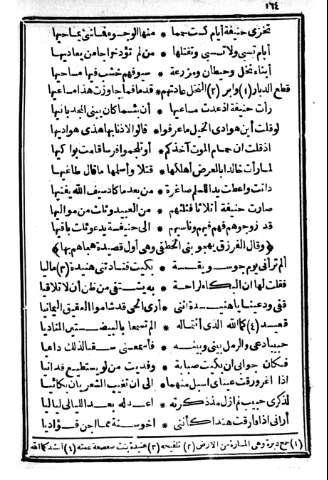 ١٦٤
تخزى حنيفة أيام كست حمما * منها الوجوه فقائنى يماحيها
أيام تسبى ولا تسبى وتقتلها * من لم تؤد خراجا من يعاديها
أبناء نخل وحيطان ومزرعة * سيوفهم خشب فيها مساحيها
قطع الديار (١) وابر (٢) النخل عادتهم * قدما فما جاوزت هذا مساعيها
رأت حنيفة اذ عدت مساعيها * أن بئسما كان يبنى المجد بانيها
لو قلت أين هوادى الخيل ما عرفوا * قالوا لاذنابها هذى هواديها
أو قلت ان حمام الموت آخذكم * أو تلجموا فرسا قامت بواكيها
لما رأت خالدا بالعرض أهلكها * قتلا وأسلمها ما قال طاغيها
دانت وأعطت يدا للسلم صاغرة * من بعد ما كاد سيف الله يفنيها
صارت حنيفة أثلاثا فثلثهم * من العبيد وثلث من مواليها
قد زوجوهم فهم فيهم وناسبهم * الى حنيفة يدعو ثلث باقيها
﴿وقال الفرزدق يهجو بنى الخطفى وهى أول قصيدة هجاهم بها﴾
ألم تر أنى يوم جو سويقة * بكيت فنادتنى هنيدة (٣) ماليا
فقلت لها ان البكاء لراحة * به يشتفى من ظن أن لا تلاقيا
قفى ودعينا يا هنيدة اننى * أرى الحى قد شاموا العقيق اليمانيا
قعيدكما (٤) الله الذى أنتما له * ألم تسمعا بالبيضتين المناديا
حبيبا دعى والرمل بينى وبينه * فأسمعنى سقيا لذلك داعيا
فكان جوابى ان بكيت صبابة * وفديت من لو يستطيع فدانيا
اذا اغرورقت عيناى أسبل منهما * الى أن تغيب الشعريان بكائيا
لذكرى حبيب لم أزل مذ ذكرته * أعد له بعد الليالى لياليا
أرانى اذا فارقت هندا كأننى * أخو سنة مما أجن فؤاديا
(١) جمع دبرة وهى المشارة من الارض (٢) تلقيحه (٣) هنيدة بنت صعصعة عمته (٤) أنشدكما الله